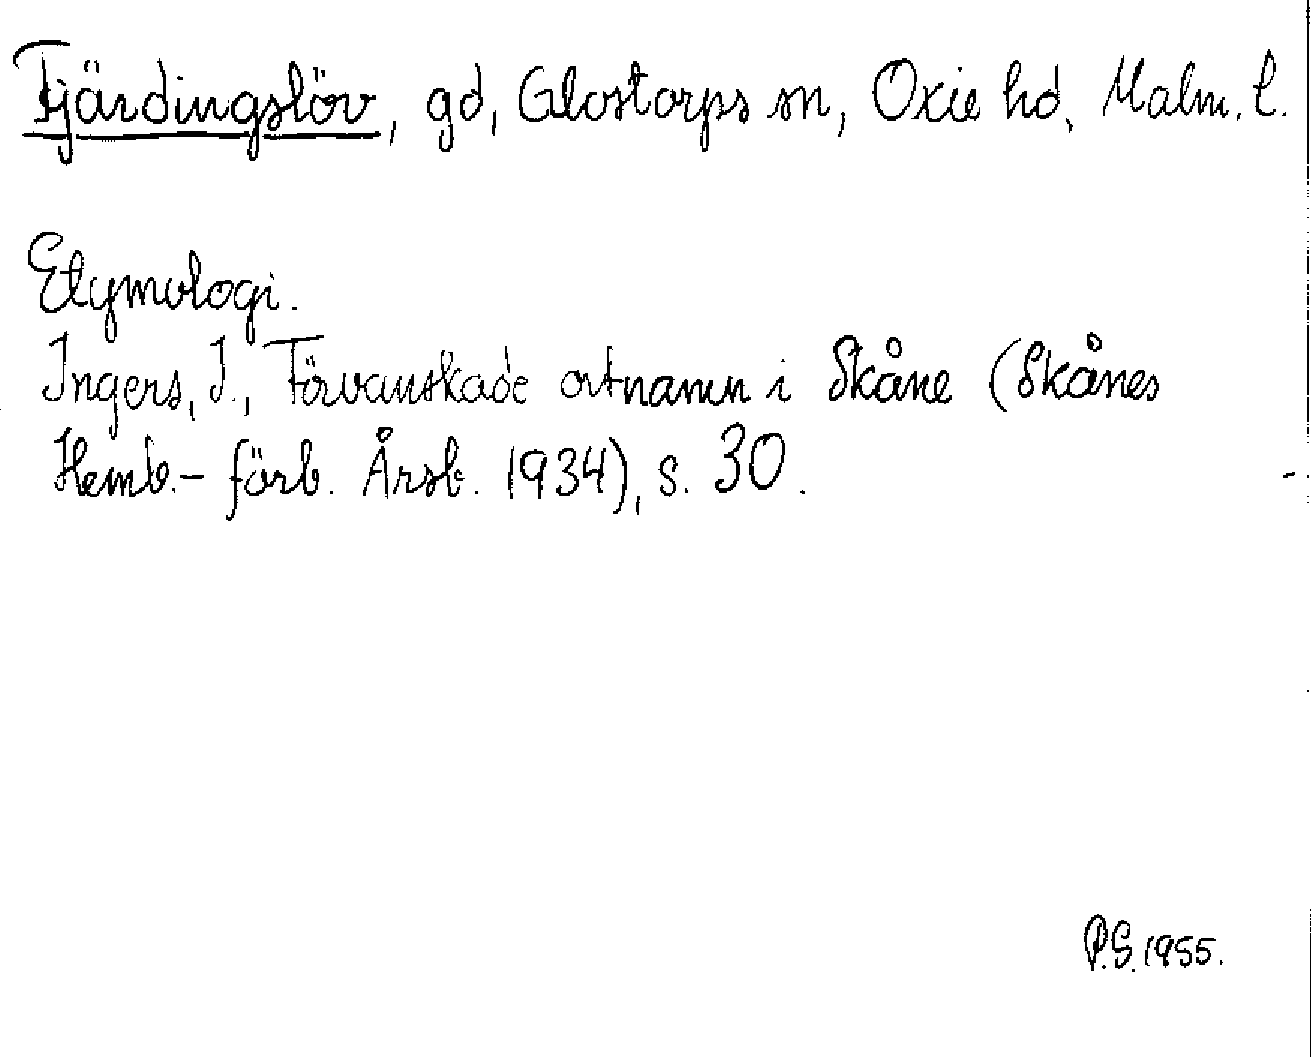 Fjärdingslöv, gd, Glostorps sn, Oxie hd, Malm. l.
Etymologi.
Ingers, I., Förvanskade ortnamn i Skåne (Skånes
Hemb.- förb. Årsb. 1934), s. 30.
P.G. 1955.